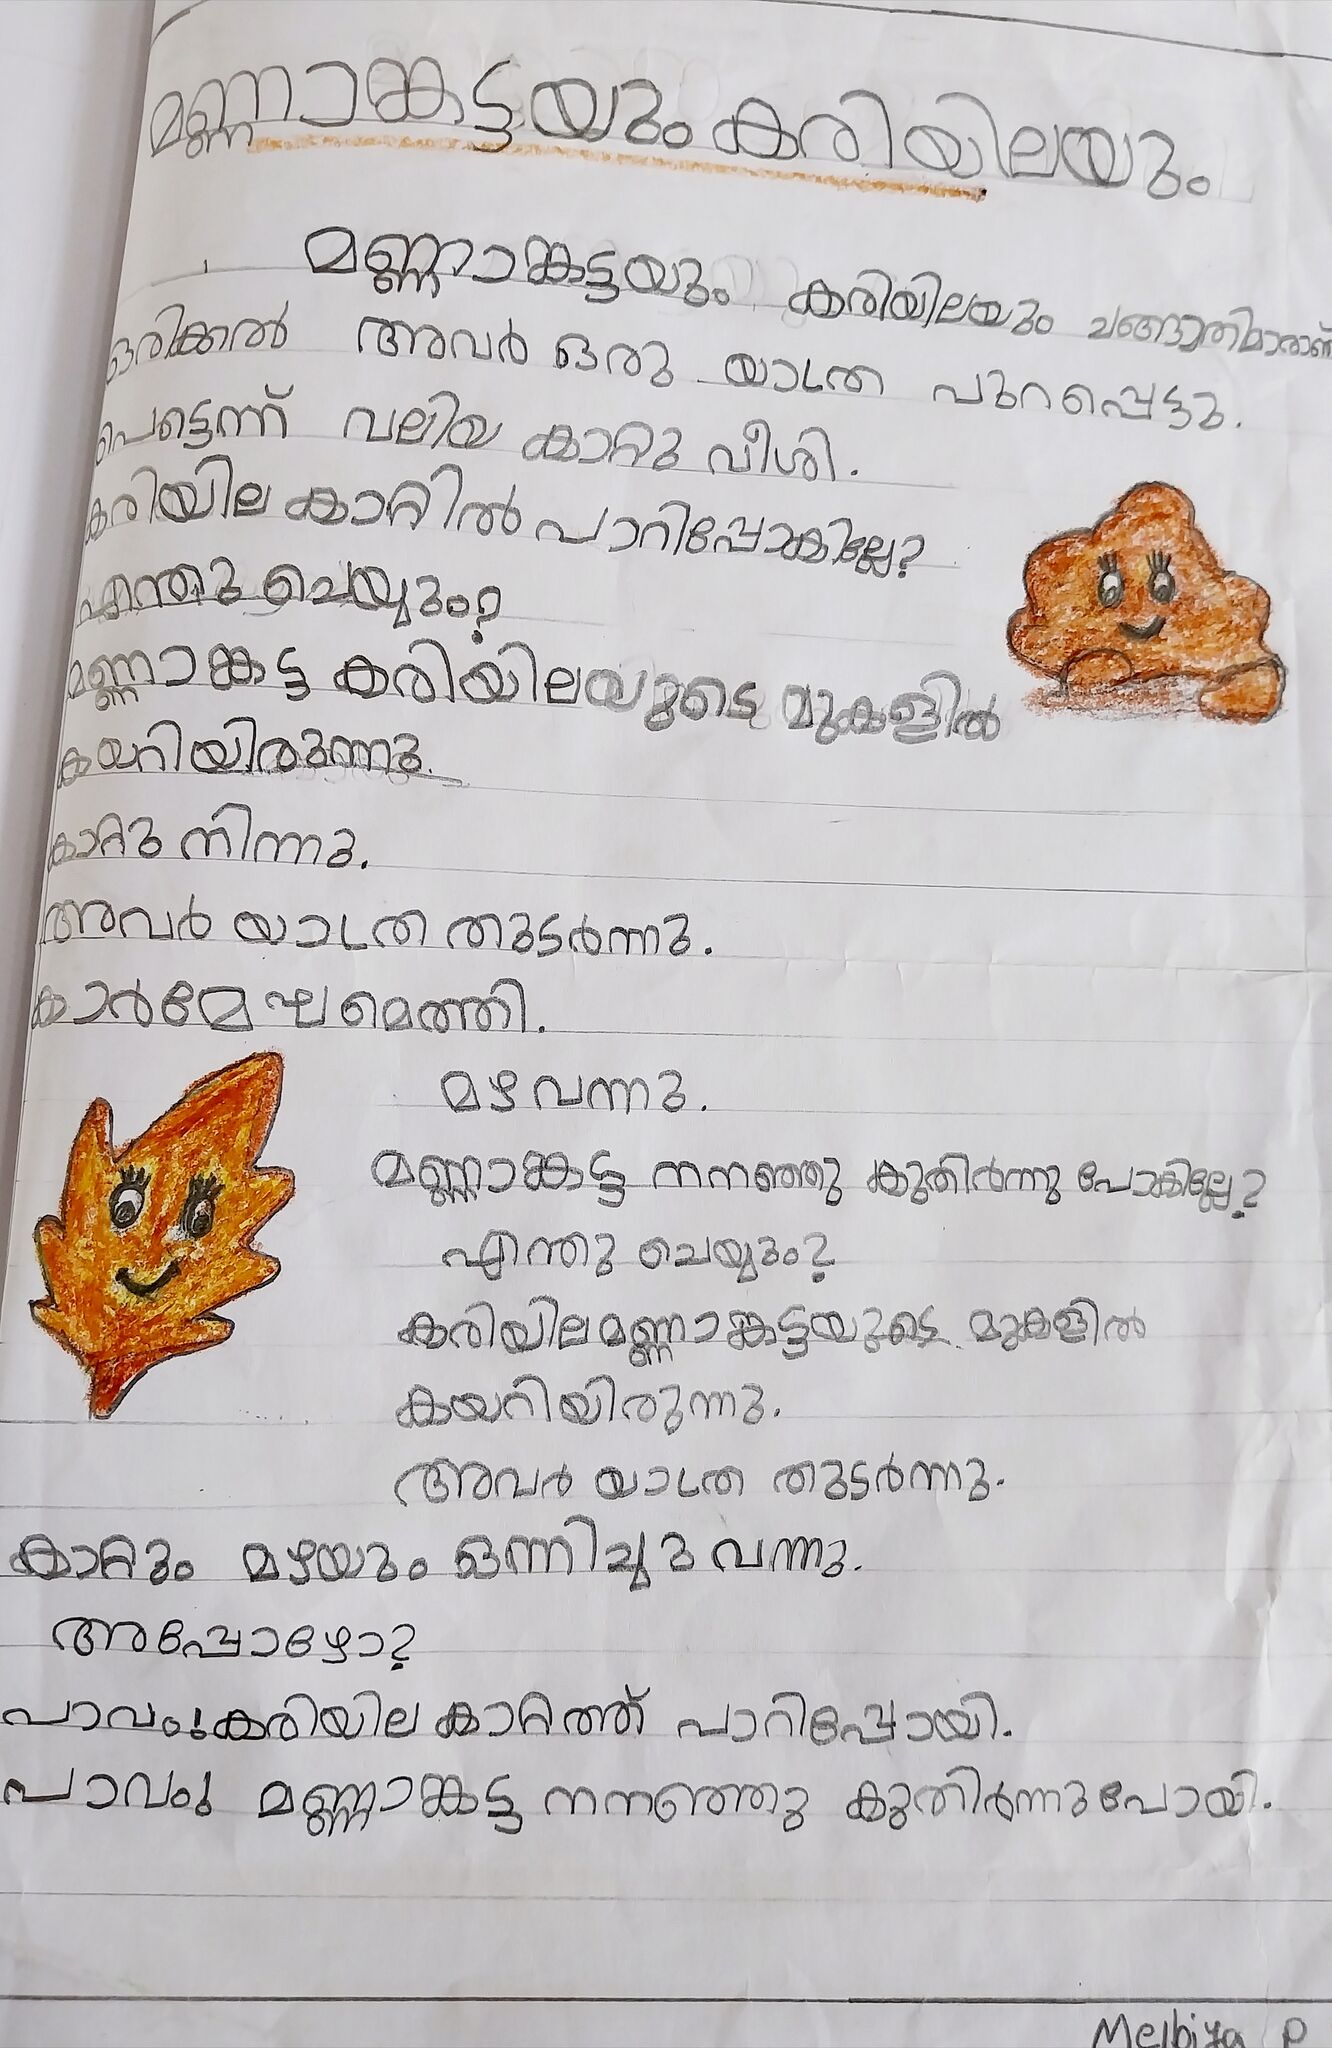 മണ്ണാങ്കട്ടയും കരിയിലയും
മണ്ണാങ്കട്ടയും കരിയിലയും ചങ്ങാതിമാരാണ്
ഒരിക്കൽ അവർ ഒരു യാത്ര പുറപ്പെട്ടു.
പെട്ടെന്ന് വലിയ കാറ്റു വീശി.
കരിയില കാറ്റിൽ പാറിപ്പോകില്ലേ?
എന്തു ചെയ്യും?
മണ്ണാങ്കട്ട കരിയിലയുടെ മുകളിൽ
കയറിയിരുന്നു.
കാറ്റു നിന്നു.
അവർ യാത്ര തുടർന്നു.
കാർമേഘമെത്തി.
മഴ വന്നു.
മണ്ണാങ്കട്ട നനഞ്ഞു കുതിർന്നു പോകില്ലേ?
എന്തു ചെയ്യും?
കരിയില മണ്ണാങ്കട്ടയുടെ മുകളിൽ
കയറിയിരുന്നു.
അവർ യാത്ര തുടർന്നു.
കാറ്റും മഴയും ഒന്നിച്ചു വന്നു.
അപ്പോഴോ?
പാവം! കരിയില കാറ്റത്ത് പാറിപ്പോയി.
പാവം! മണ്ണാങ്കട്ട നനഞ്ഞു കുതിർന്നുപോയി.
Melbiya P